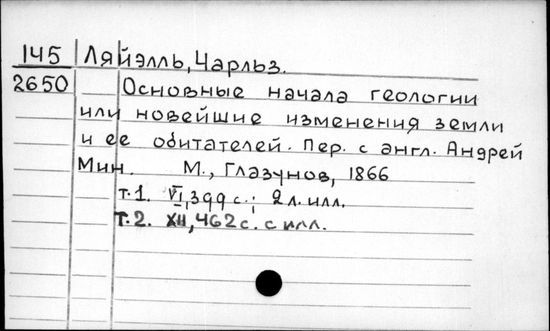 145 Ляйэлль, Чарльз.
2650 Основные начала геологии
или новейшие изменения земли
и ее обитателей. Пер. с англ. Андрей
Мин. М., Глазунов, 1866
т.1. VI, 399 с.; 2 л. илл.
т.2. XII, 462 с. с илл.